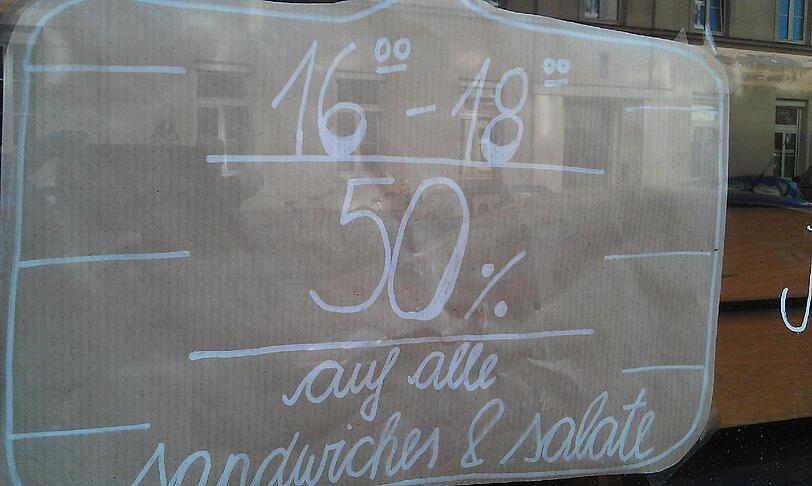 16⁰⁰ - 18⁰⁰
50%
auf alle
sandwiches & salate